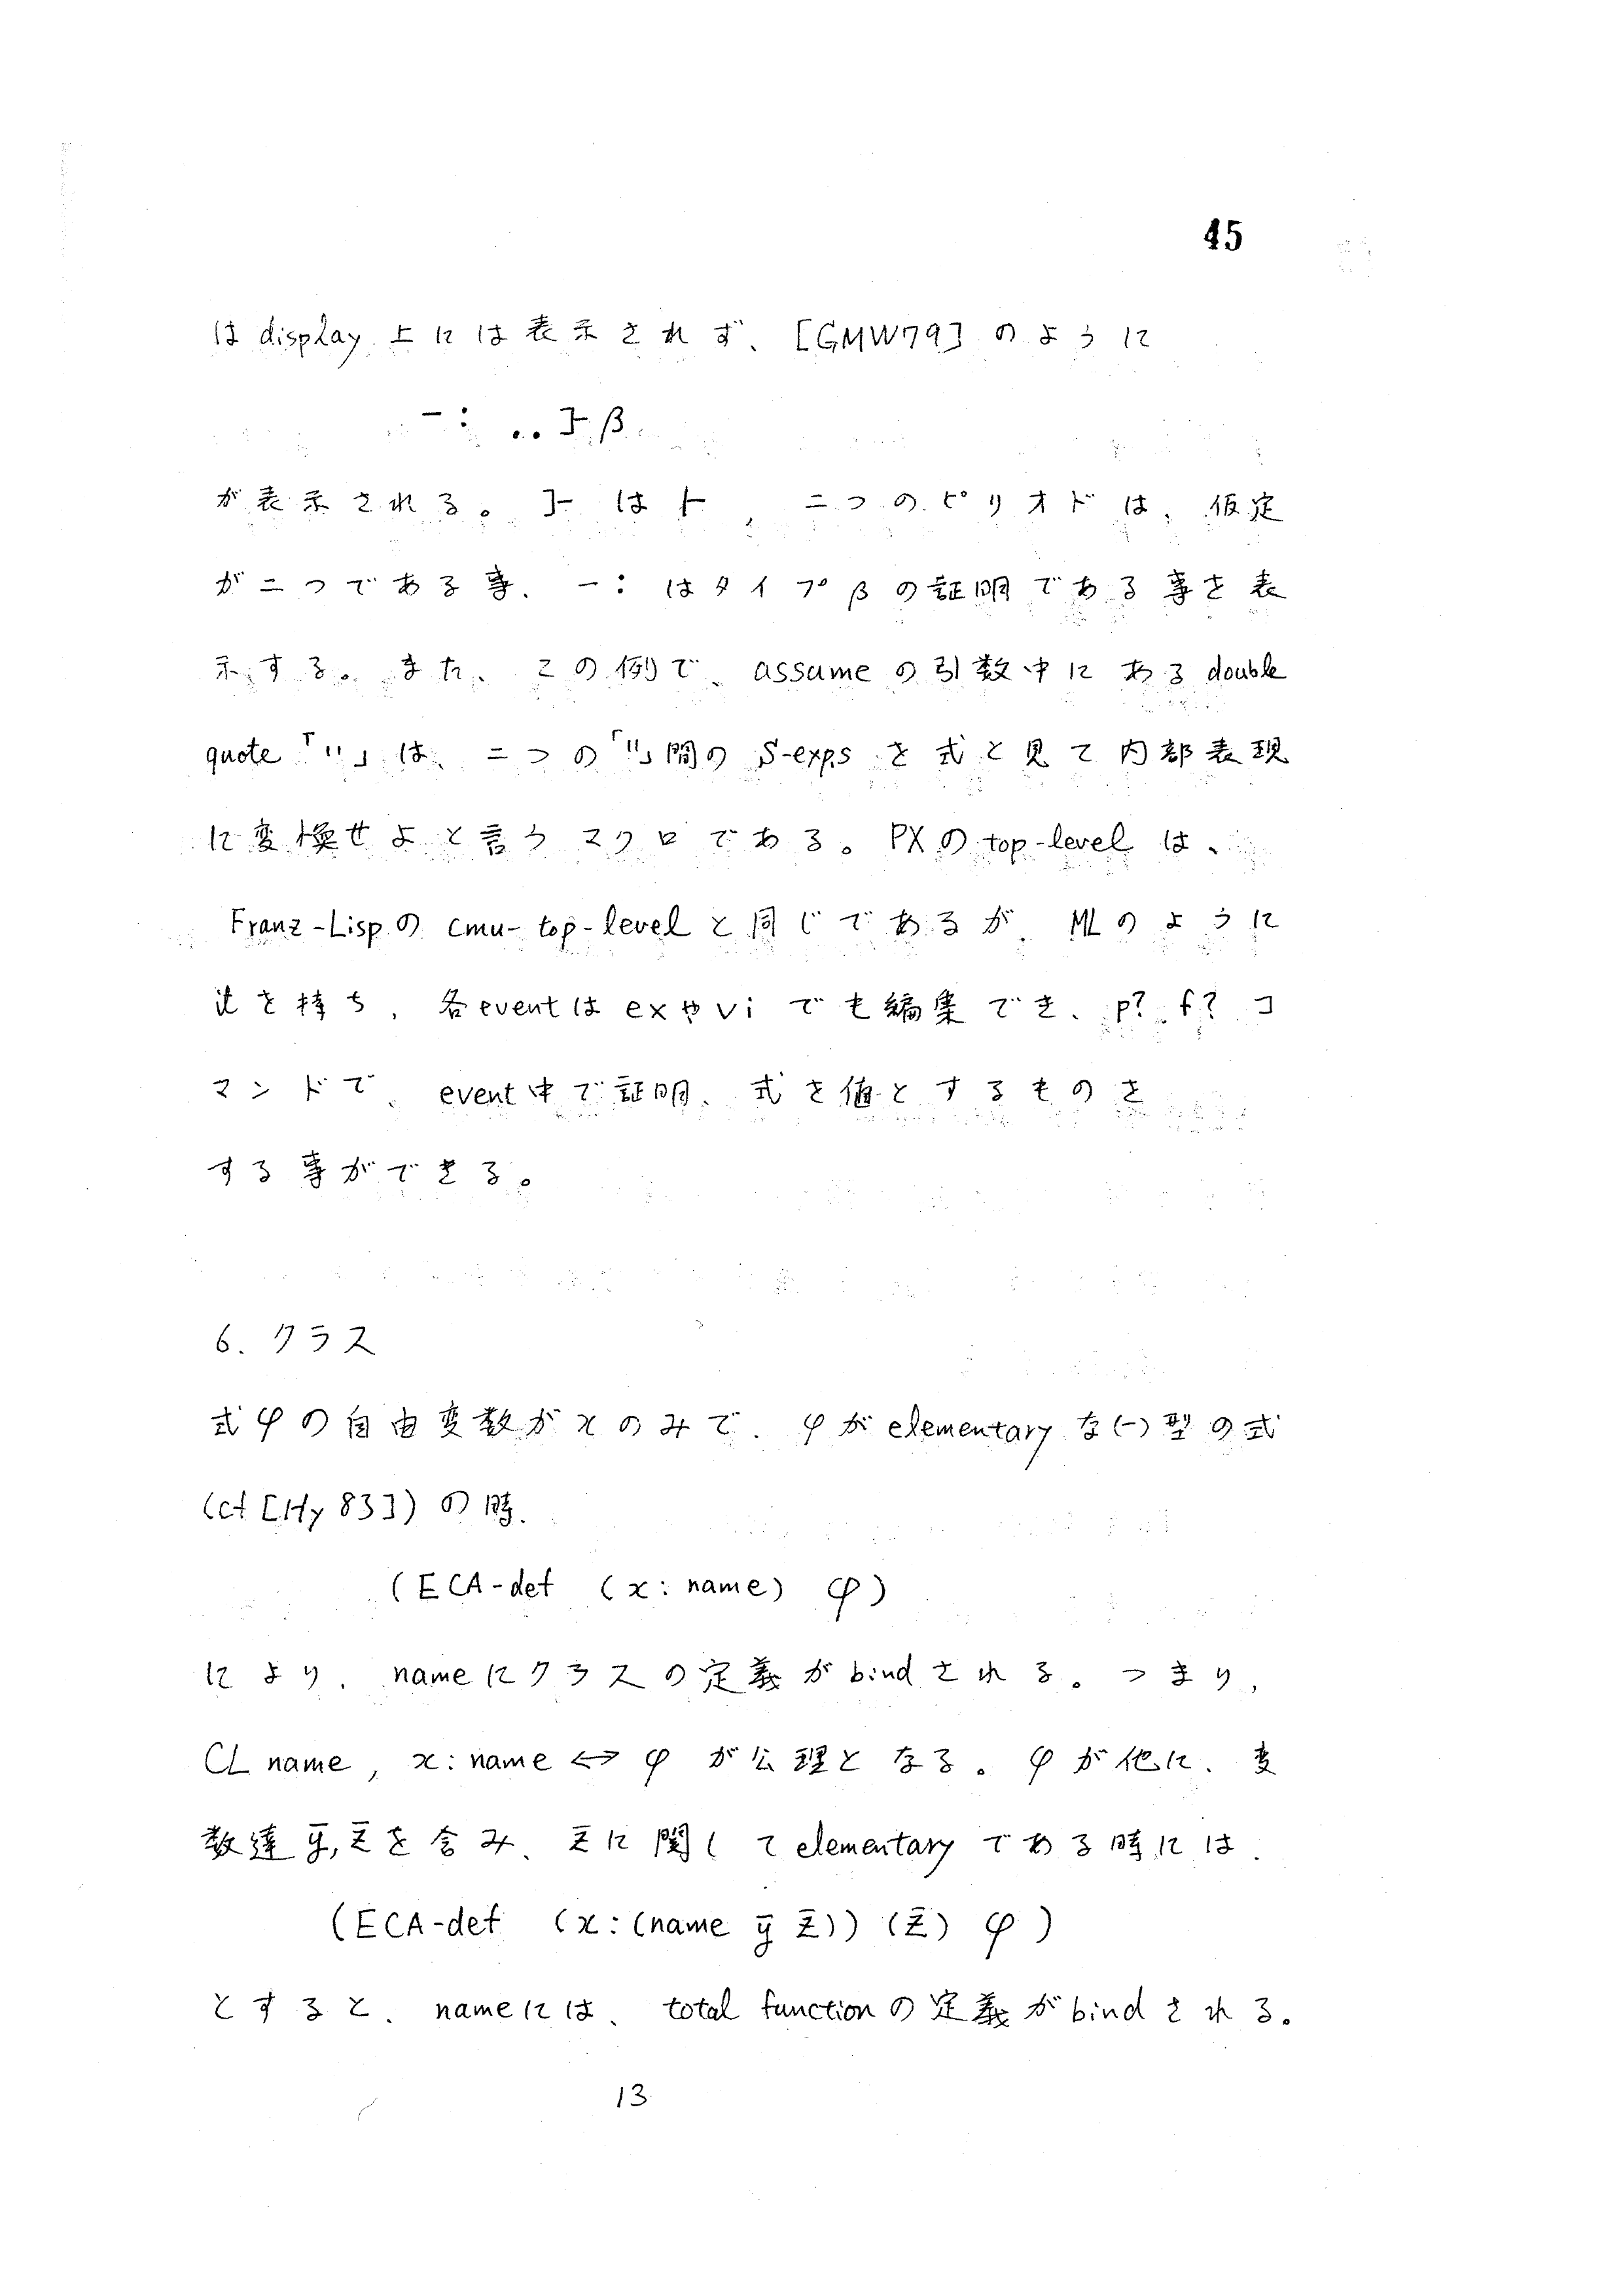 45
は display 上には表示されず、[GMW79]のように
-: ..}-β
が表示される。}-は⊢, 二つのピリオドは、仮定
が二つである事、-:はタイプβの証明である事を表
示する。また、この例で、assumeの引数中にあるdouble
quote「"」は、二つの「"」間の S-exps を式と見て内部表現
に変換せよと言うマクロである。PXのtop-level は、
Franz-Lispの cmu-top-levelと同じであるが、MLのように
itを持ち、各eventは exやvi でも編集でき、p?, f? コ
マンドで、event中で証明、式を値とするものを
する事ができる。
6. クラス
式φの自由変数がxのみで、φがelementaryな(-)型の式
(cf [Hy 83])の時、
(ECA-def (x: name) φ)
により、nameにクラスの定義がbindされる。つまり,
CL name, x: name ⟺ φ が公理となる。φが他に、変
数達ȳ, z̄を含み、z̄に関してelementaryである時には、
(ECA-def (x: (name ȳ z̄)) (z̄) φ)
とすると、nameには、total functionの定義がbindされる。
13